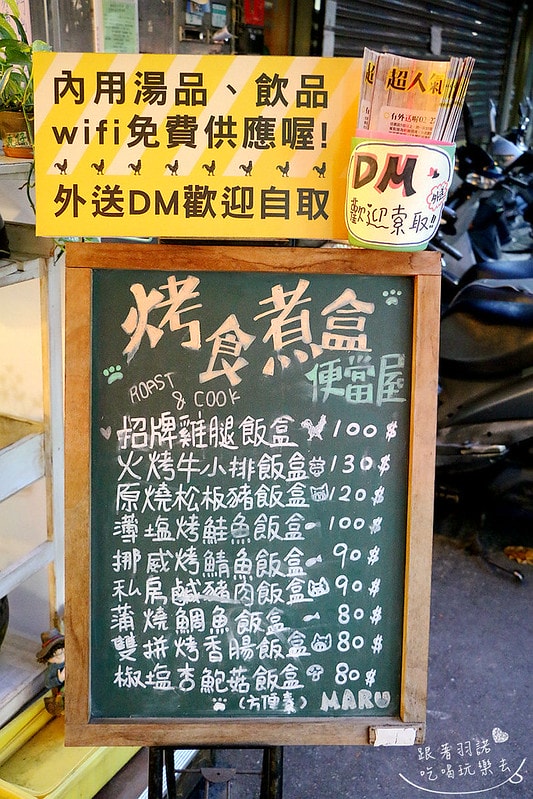 內用湯品、飲品
wifi免費供應喔!
外送DM歡迎自取
超人氣
DM
歡迎索取!!
烤食煮盒
ROAST
& COOK
便當屋
招牌雞腿飯盒 100$
火烤牛小排飯盒 130$
原燒松板豬飯盒 120$
薄塩烤鮭魚飯盒 100$
挪威烤鯖魚飯盒 90$
私房鹹豬肉飯盒 90$
蒲燒鯛魚飯盒 80$
雙拼烤香腸飯盒 80$
椒塩杏鮑菇飯盒 80$
(方便素) MARU
跟著羽諾
吃喝玩樂去